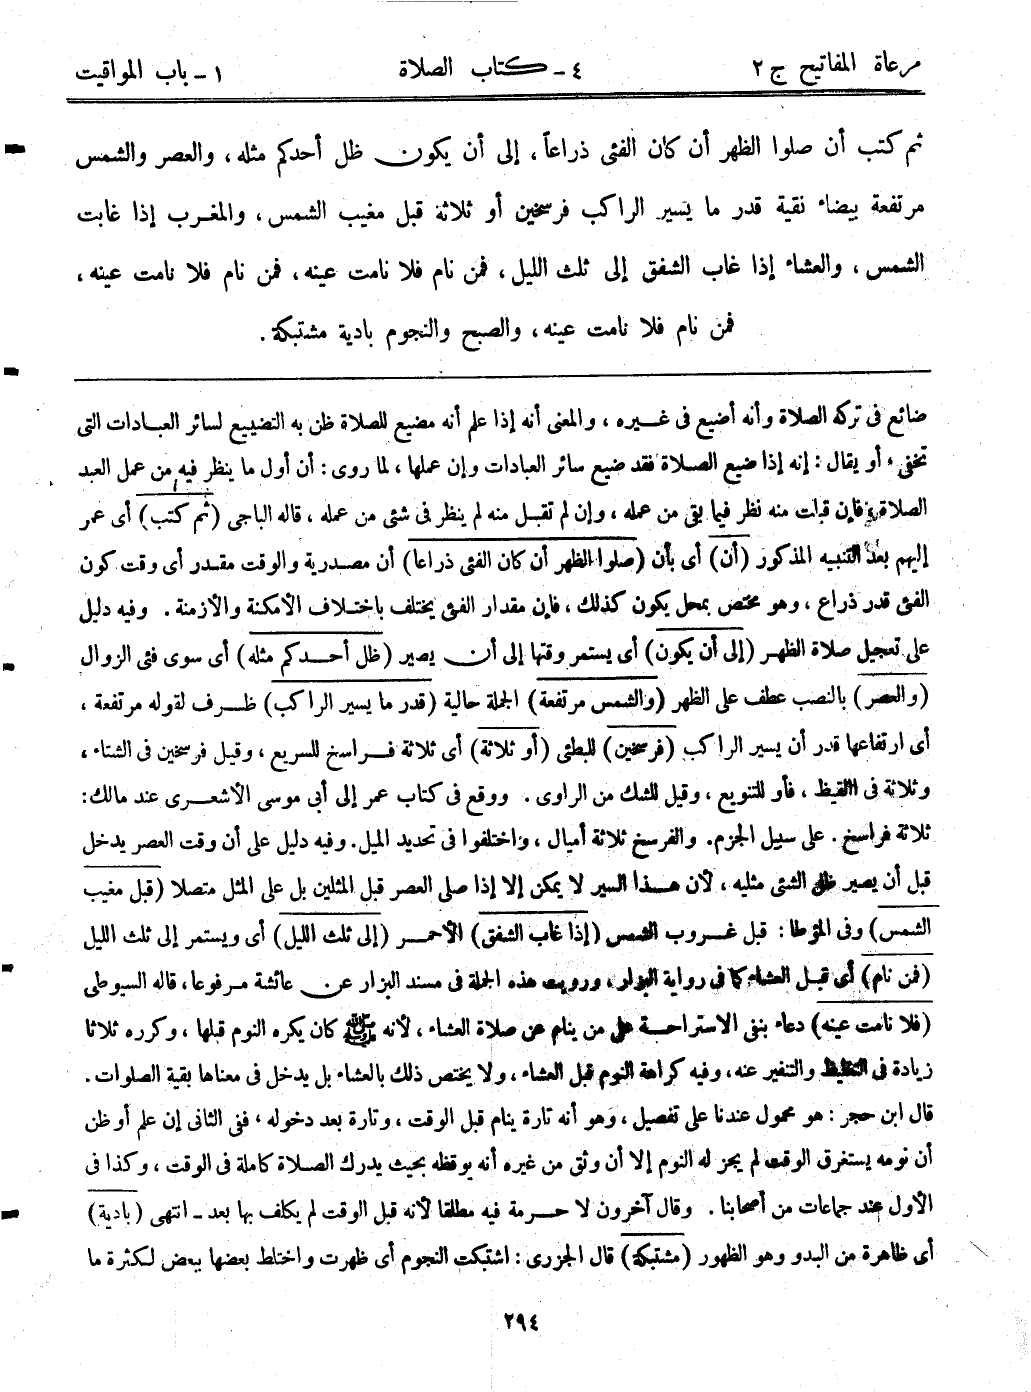 مرعاة المفاتيح ج ٢
٤ - كتاب الصلاة
١ - باب المواقيت
ثم كتب أن صلوا الظهر أن كان الفئى ذراعاً، إلى أن يكون ظل أحدكم مثله، والعصر والشمس
مرتفعة بيضاء نقية قدر ما يسير الراكب فرسخين أو ثلاثة قبل مغيب الشمس، والمغرب إذا غابت
الشمس، والعشاء إذا غاب الشفق إلى ثلث الليل، فمن نام فلا نامت عينه، فمن نام فلا نامت عينه،
فمن نام فلا نامت عينه، والصبح والنجوم بادية مشتبكة.
ضائع فى تركه الصلاة وأنه أضيع فى غيره، والمعنى أنه إذا علم أنه مضيع للصلاة ظن به التضييع لسائر العبادات التى
تخفى، أو يقال: إنه إذا ضيع الصلاة فقد ضيع سائر العبادات وإن عملها، لما روى: أن أول ما ينظر فيه من عمل العبد
الصلاة، فإن قبلت منه نظر فيما بقى من عمله، وإن لم تقبل منه لم ينظر فى شئى من عمله، قاله الباجى (ثم كتب) أى عمر
إليهم بعد التنبيه المذكور (أن) أى بأن (صلوا الظهر أن كان الفئى ذراعا) أن مصدرية والوقت مقدر أى وقت كون
الفئى قدر ذراع، وهو مختص بمحل يكون كذلك، فإن مقدار الفىء يختلف باختلاف الأمكنة والأزمنة. وفيه دليل
على تعجيل صلاة الظهر (إلى أن يكون) أى يستمر وقتها إلى أن يصير (ظل أحدكم مثله) أى سوى فئى الزوال
(والعصر) بالنصب عطف على الظهر (والشمس مرتفعة) الجملة حالية (قدر ما يسير الراكب) ظرف لقوله مرتفعة،
أى ارتفاعها قدر أن يسير الراكب (فرسخين) للبطئى (أو ثلاثة) أى ثلاثة فراسخ للسريع، وقيل فرسخين فى الشتاء،
وثلاثة فى القيظ، فأو للتنويع، وقيل للشك من الراوى. ووقع فى كتاب عمر إلى أبي موسى الأشعرى عند مالك:
ثلاثة فراسخ. على سبيل الجزم. والفرسخ ثلاثة أميال، واختلفوا فى تحديد الميل. وفيه دليل على أن وقت العصر يدخل
قبل أن يصير ظل الشئى مثليه، لأن هذا السير لا يمكن إلا إذا صلى العصر قبل المثلين بل على المثل متصلا (قبل مغيب
الشمس) وفى المؤطا: قبل غروب الشمس (إذا غاب الشفق) الأحمر (إلى ثلث الليل) أى ويستمر إلى ثلث الليل
(فمن نام) أى قبل العشاء كما فى رواية البزار، ورويت هذه الجملة فى مسند البزار عن عائشة مرفوعا، قاله السيوطى
(فلا نامت عينه) دعاء بنفى الاستراحة على من ينام عن صلاة العشاء، لأنه ﷺ كان يكره النوم قبلها، وكرره ثلاثا
زيادة فى التغليظ والتنفير عنه، وفيه كراهة النوم قبل العشاء، ولا يختص ذلك بالعشاء بل يدخل فى معناها بقية الصلوات.
قال ابن حجر: هو محمول عندنا على تفصيل، وهو أنه تارة ينام قبل الوقت، وتارة بعد دخوله، ففى الثانى إن علم أو ظن
أن نومه يستغرق الوقت لم يجز له النوم إلا أن وثق من غيره أنه يوقظه بحيث يدرك الصلاة كاملة فى الوقت، وكذا فى
الأول عند جماعات من أصحابنا. وقال آخرون لا حرمة فيه مطلقا لأنه قبل الوقت لم يكلف بها بعد - انتهى (بادية)
أى ظاهرة من البدو وهو الظهور (مشتبكة) قال الجزرى: اشتبكت النجوم أى ظهرت واختلط بعضها ببعض لكثرة ما
٢٩٤